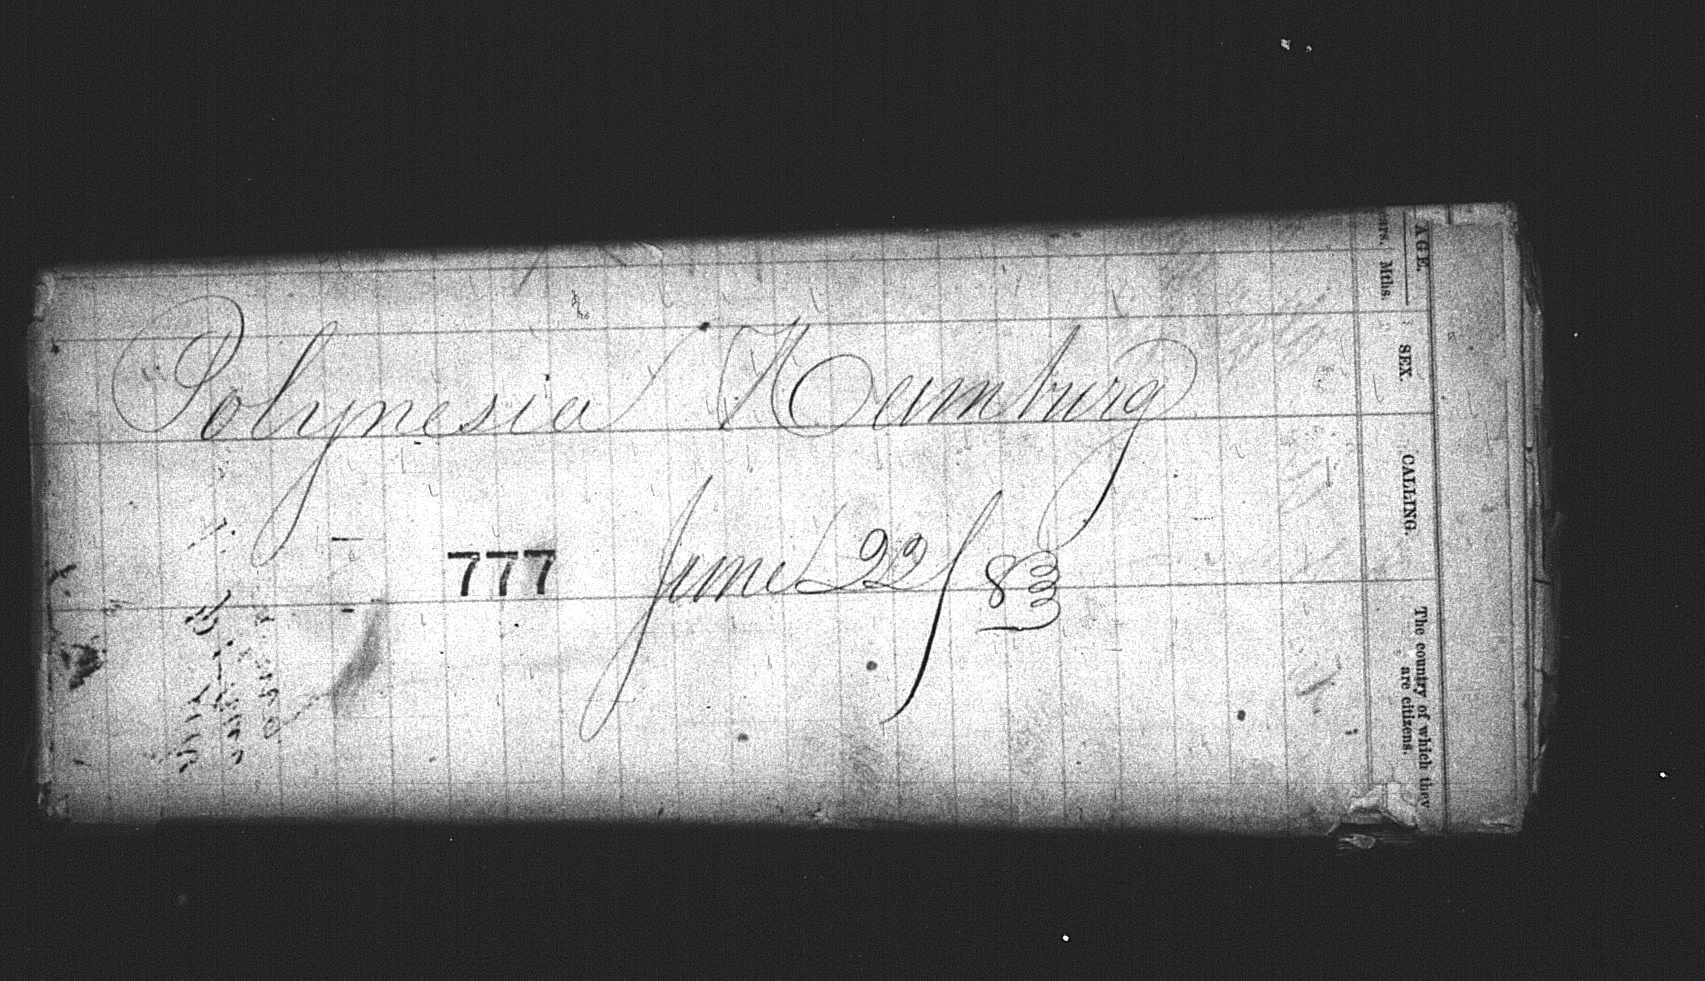 Polynesia Hamburg
777 June 22/83
AGE.
Mths.
SEX.
CALLING.
The country of which they
are citizens.